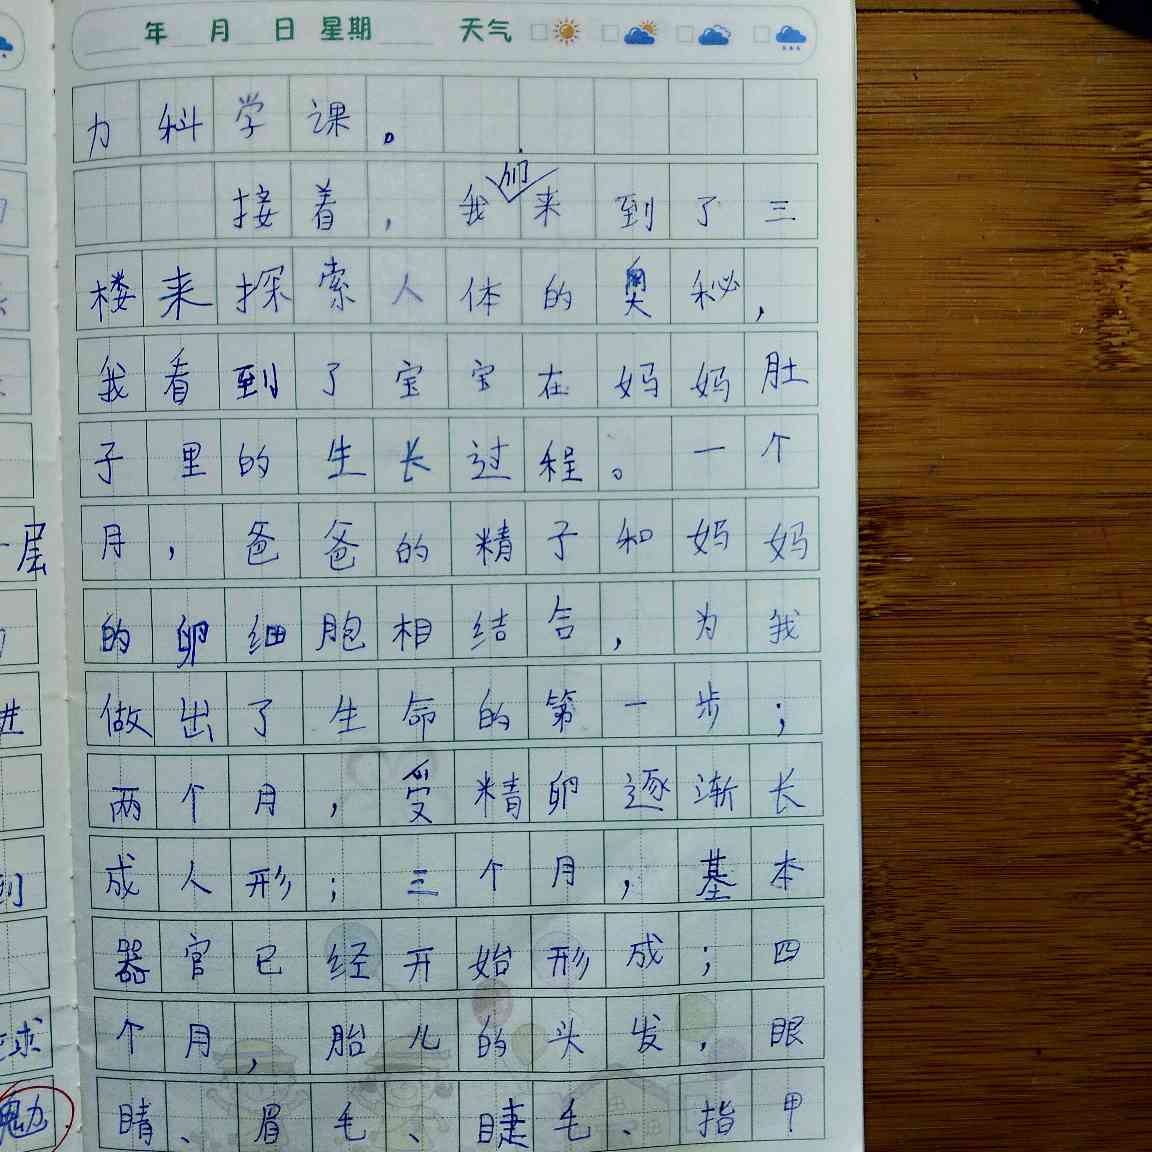 年 月 日 星期 天气
力科学课。
接着，我们来到了三
楼来探索人体的奥秘，
我看到了宝宝在妈妈肚
子里的生长过程。一个
月，爸爸的精子和妈妈
的卵细胞相结合，为我
做出了生命的第一步；
两个月，受精卵逐渐长
成人形；三个月，基本
器官已经开始形成；四
个月，胎儿的头发，眼
睛、眉毛、睫毛、指甲
一层
进
到
球